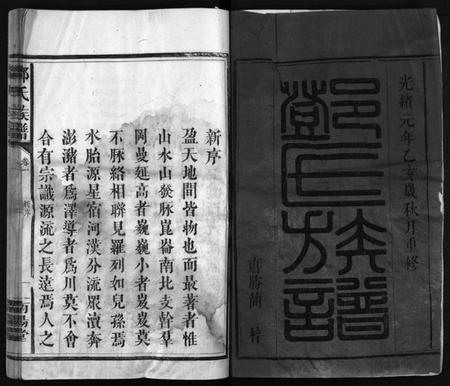 光緒元年乙亥歲秋月重修
鄧氏族譜
唐勝蘭梓
新序
盈天地間皆物也而最著者惟
山水山發脉崑崙南北支幹羣
岡蔓延高者巍巍小者岌岌莫
不脉絡相聯見羅列如兒孫焉
水胎源星宿河漢分流眾瀆奔
澎瀦者爲澤導者爲川莫不會
合有宗議源流之長遠焉人之
鄧氏族譜
卷
新序
南陽堂